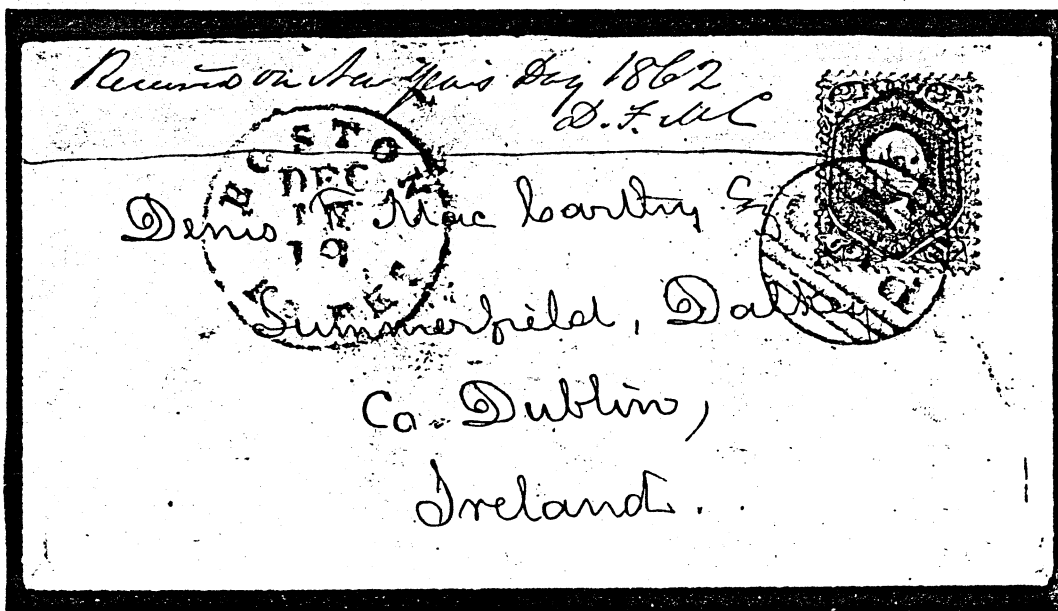 Received on New Year's Day 1862
D. F. McC
BOSTON
DEC
19
Denis Mac Carthy Esq
Summerfield, Dalkey,
Co. Dublin,
Ireland.
PD